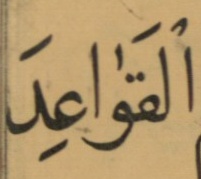 ٱلْقَوَٰاعِدَ